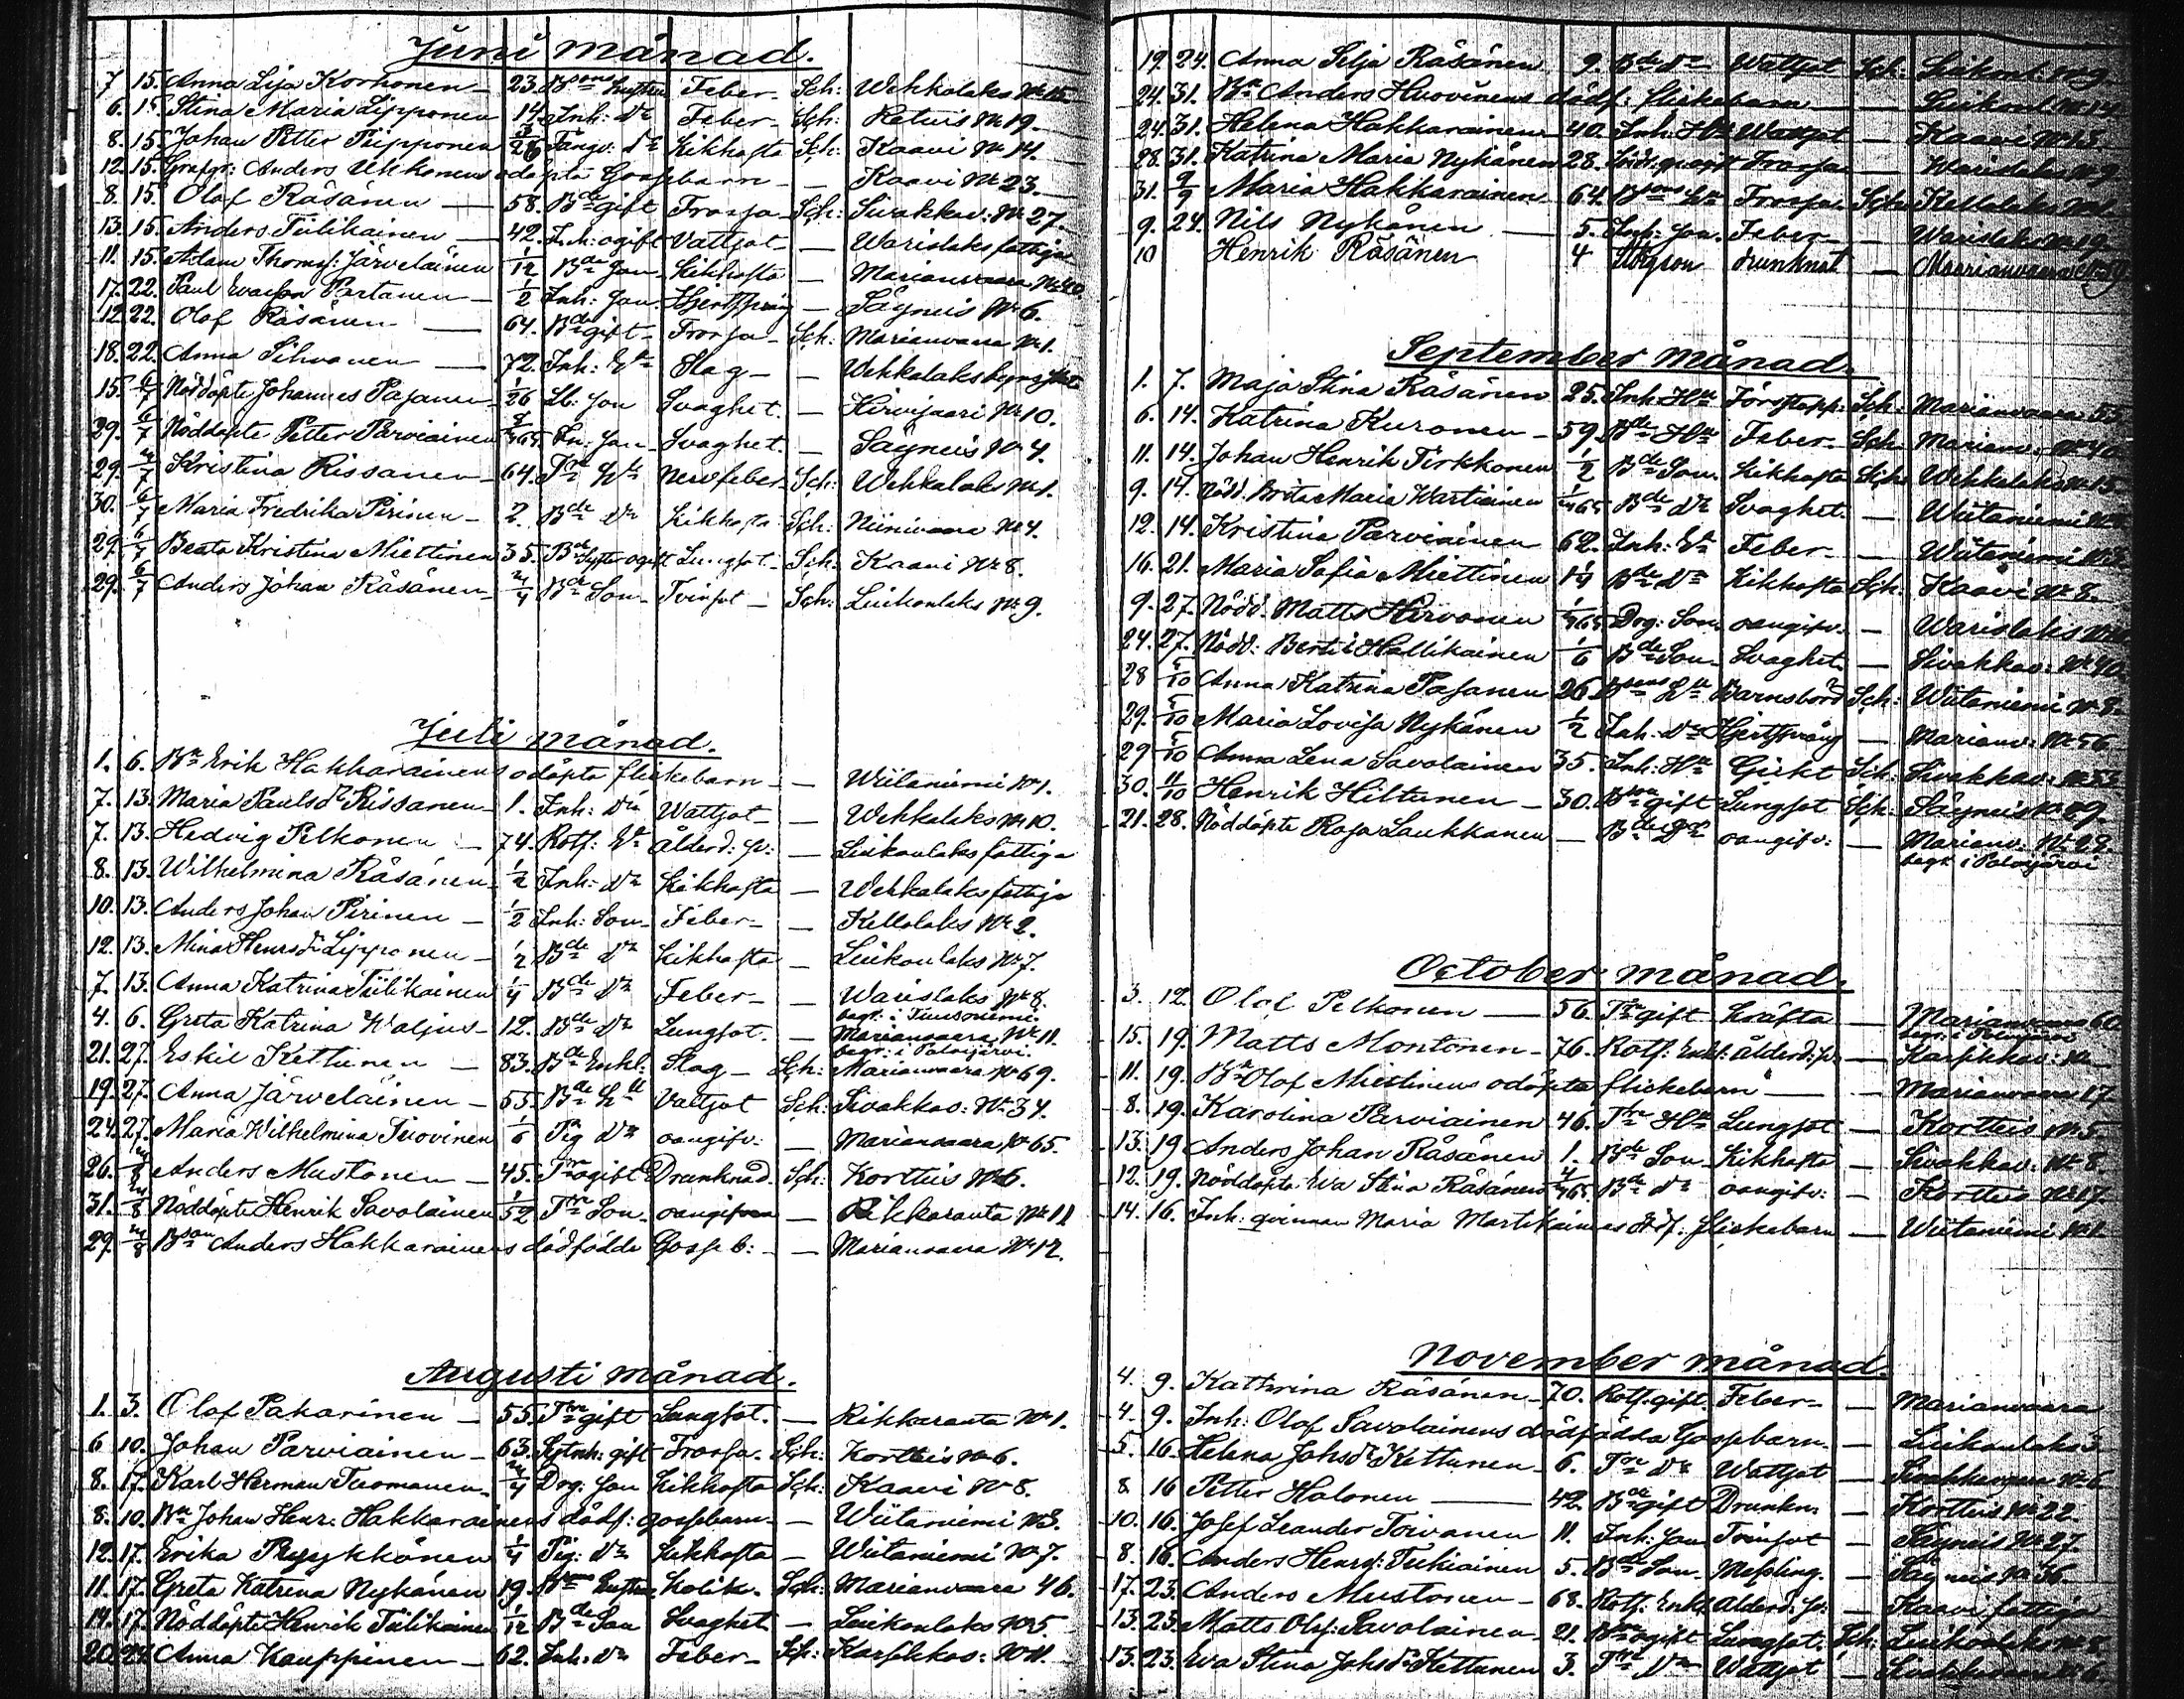 Juni månad.
7 15. Anna Lisa Korhonen 23. Bsons hustru Feber Sch: Wehkalaks No 15
6. 15. Stina Maria Lipponen 14. Inh: Dr Feber Sch: Retuis No 19.
8. 15. Johan Petter Piipponen 3/26 Fångv: Kikhosta Sch: Kaavi No 14.
12. 15. Anders Ukkonens odöpta Gossebarn — Kaavi No 23.
8. 15. Olof Räsänen — 58. Bde gift Frossa Sch: Sivakkav: No 27.
13. 15. Anders Tiilikainen — 42. Inh: ogift Vattsot — Warislaks fattiga
11. 15. Adam Thomss: Järveläinen 1/12 Bde Son Kikhosta — Marianvaara No 40.
17. 22. Paul Evasson Partanen — 1/2 Inh: Son — Säyneis No 6.
12. 22. Olof Räsänen — 64. Bde gift Frossa Sch: Marianvaara No 1.
18. 22. Anna Sihvonen — 72. Inh: Slag — Wehkalaks
15. 6/7 Nöddöpte Johannes Pasanen 1/26 Son Svaghet. — Hirvisaari No 10.
29. 6/7 Nöddöpte Petter Parviainen Son Svaghet. — Säyneis No 4.
29. 4/7 Kristina Rissanen 64. Nervfeber Sch: Wehkalaks No 1.
30. 6/7 Maria Fredrika Pirinen — 2. Bde Dr Kikhosta Sch: Niinivaara No 4.
29. 6/7 Beata Kristina Miettinen 35. Bde Syster ogift Lungsot Sch: Kaavi No 8.
29. 6/7 Anders Johan Räsänen 3/4 Bde Son Tvinsot — Sch: Luikonlaks No 9.
Juli månad.
1. 6. Bn Erik Hakkarainens odöpta flickebarn — Wiitaniemi No 1.
7. 13. Maria Paulsdr Rissanen 1. Inh: Dr Wattsot — Wehkalaks No 10.
7. 13. Hedvig Pelkonen — 74. Rotf: Ålderd: — Luikonlaks fattiga
8. 13. Wilhelmina Räsänen 1/2 Inh: Dr Kikhosta — Wehkalaks fattiga
10. 13. Anders Johan Pirinen — 1/2 Inh: Son Feber — Kellolaks No 2.
12. 13. Mina Henrsdr Lipponen — 1/2 Bde Dr Kikhosta — Luikonlaks No 7.
7. 13. Anna Katrina Tiilikainen 1/4 Bde Dr Feber — Warislaks No 8.
begr: i Tuusniemi.
4. 6. Greta Katrina Waljus 12. Bde Dr Lungsot. — Marianvaara No 11.
begr: i Polvijärvi.
21. 27. Eskil Kettunen — 83. Bde Enkl: Slag — Sch: Marianvaara No 69.
19. 27. Anna Järveläinen — 55. Bde Vattsot Sch: Sivakkav: No 34.
24. 27. Maria Wilhelmina Tuovinen 1/6 Pig Dr oangifv: — Marianvaara No 65.
26. 3/8 Anders Mustonen — 45. ogift Drunknad. Sch: Korttis No 6.
31. 3/8 Nöddöpte Henrik Savolainen 1/52 Son oangifven — Rikkaranta No 11
29. 3/8 Bson Anders Hakkarainens dödfödde Gosse b: — Marianvaara No 12.
Augusti månad.
1. 3. Olof Pakarinen — 55. gift Lungsot. — Rikkaranta No 1.
6 10. Johan Parviainen — 63. gift Frossa. Sch: Korttis No 6.
8. 17. Karl Herman Tuomanen 3/4 Drg: Son Kikhosta Sch: Kaavi No 8.
8. 10. Bn Johan Henr: Hakkarainens dödf: gossebarn — Wiitaniemi No 3.
12. 17. Erika Ryyykkönen 1/4 Pig: Dr Kikhosta — Wiitaniemi No 7.
11. 17. Greta Katrina Nykänen 19. hustru Kolik. Sch: Marianvaara 46.
14. 17. Nöddöpte Henrik Tiilikainen 1/12 Bde Son Svaghet — Luikonlaks No 5.
20. 24. Anna Kauppinen — 62. Inh: Feber Sch: Karsikkov: No 11.
19. 24. Anna Selja Räsänen 9. Bde Dr Wattsot Sch: Luikonl: No 9
24. 31. Bn Anders Huovinens dödf: flickebarn — Luikonl: No 14
24. 31. Helena Hakkarainen 40. Inh: Hu Wattsot — Kaavi No 13.
28. 31. Katrina Maria Nykänen 28. Frossa — Warislaks No 9.
31. 7/9 Maria Hakkarainen 64. Frossa Sch: Kellolaks No 1.
9. 24. Nils Nykänen — 5. Inh: Son. Feber — Warislaks No 19
10 Henrik Räsänen 4 drunknat — Marianvaara No 9
September månad.
1. 7. Maja Stina Räsänen 25. Inh: Hu Förstopp: Sch: Marianvaara 53.
6. 14. Katrina Kuronen — 59. Bde Hu Feber Sch. Marianv: No 40
11. 14. Johan Henrik Tirkkonen 1/2 Bde Son. Kikhosta Sch: Wehkalaks No 15.
9. 14. Nödd. Brita Maria Wartiainen Bde Dr Svaghet. — Wiitaniemi
12. 14. Kristina Parviainen 62. Inh: Feber — Wiitaniemi No 3.
16. 21. Maria Sofia Miettinen 1 1/4 Bde Dr Kikhosta Sch: Kaavi No 8.
9. 27. Nödd. Matts Hirvonen Drg: Son. oangifv. — Warislaks
24. 27. Nödd: Bertil Hallikainen 1/6 Bde Son Svaghet. — Sivakkav: No 40.
28 5/10 Anna Katrina Pasanen 26. Barnsbörd Sch: Wiitaniemi No 8.
29. 5/10 Maria Lovisa Nykänen 1/2 Inh. Dr — Marianv: No 56.
29 5/10 Anna Lena Savolainen 35. Inh: Hu Gickt Sch: Sivakkav: No 53
30. 11/10 Henrik Hiltunen — 30. gift Lungsot Sch: Säyneis No 69.
21. 28. Nöddöpte Rosa Laukkanen — Bde Dr oangifv: — Marianv: No 28.
begr: i Polvijärvi
October månad.
3. 12. Olof Pelkonen — 56. gift Kräfta — Marianvaara 60
begr: i Polvijärvi
15. 19. Matts Montonen 76. Rotf: Enkl: ålderd: — Karsikkov: No
11. 19. Bn Olof Miettinens odöpta flickebarn — Marianvaara 17.
8. 19. Karolina Parviainen 46. Hu Lungsot — Korttis No 5.
13. 19 Anders Johan Räsänen 1. Bde Son Kikhosta — Sivakkav: No 8.
12. 19. Nöddöpta Eva Stina Räsänen Bde Dr oangifv: — Korttis No 17.
14. 16. Inh: qvinnan Maria Martikaines ddf: flickebarn — Wiitaniemi No 1.
November månad.
4. 9. Kathrina Räsänen 70. Rotf. gift Feber — Marianvaara
4. 9. Inh: Olof Savolainens dödfödda Gossebarn. — Luikonlaks 3
5. 16. Helena Johsdr Kettunen 6. Dr Wattsot — Sivakkavaara No 6
8 16 Petter Halonen — 42. Bde gift Drunkn. — Korttis No 22.
10. 16. Josef Leander Toivanen 11. Inh: Son Tvinsot — Säyneis No 27.
8. 16. Anders Henrss: Tukiainen 5. Bde Son. Messling. — Säyneis No 36.
17. 23. Anders Mustonen — 68. Rotf: Enkl: Ålderd: — Kaavi fattiga
13. 23. Matts Olss: Savolainen 21. ogift Lungsot. Sch: Luikonlaks No 8.
13. 23. Eva Stina Johsdr Kettunen 3. Dr Wattsot — Sivakkavaara No 6.